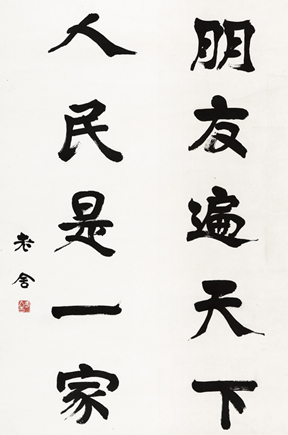 朋友遍天下
人民是一家
老舍